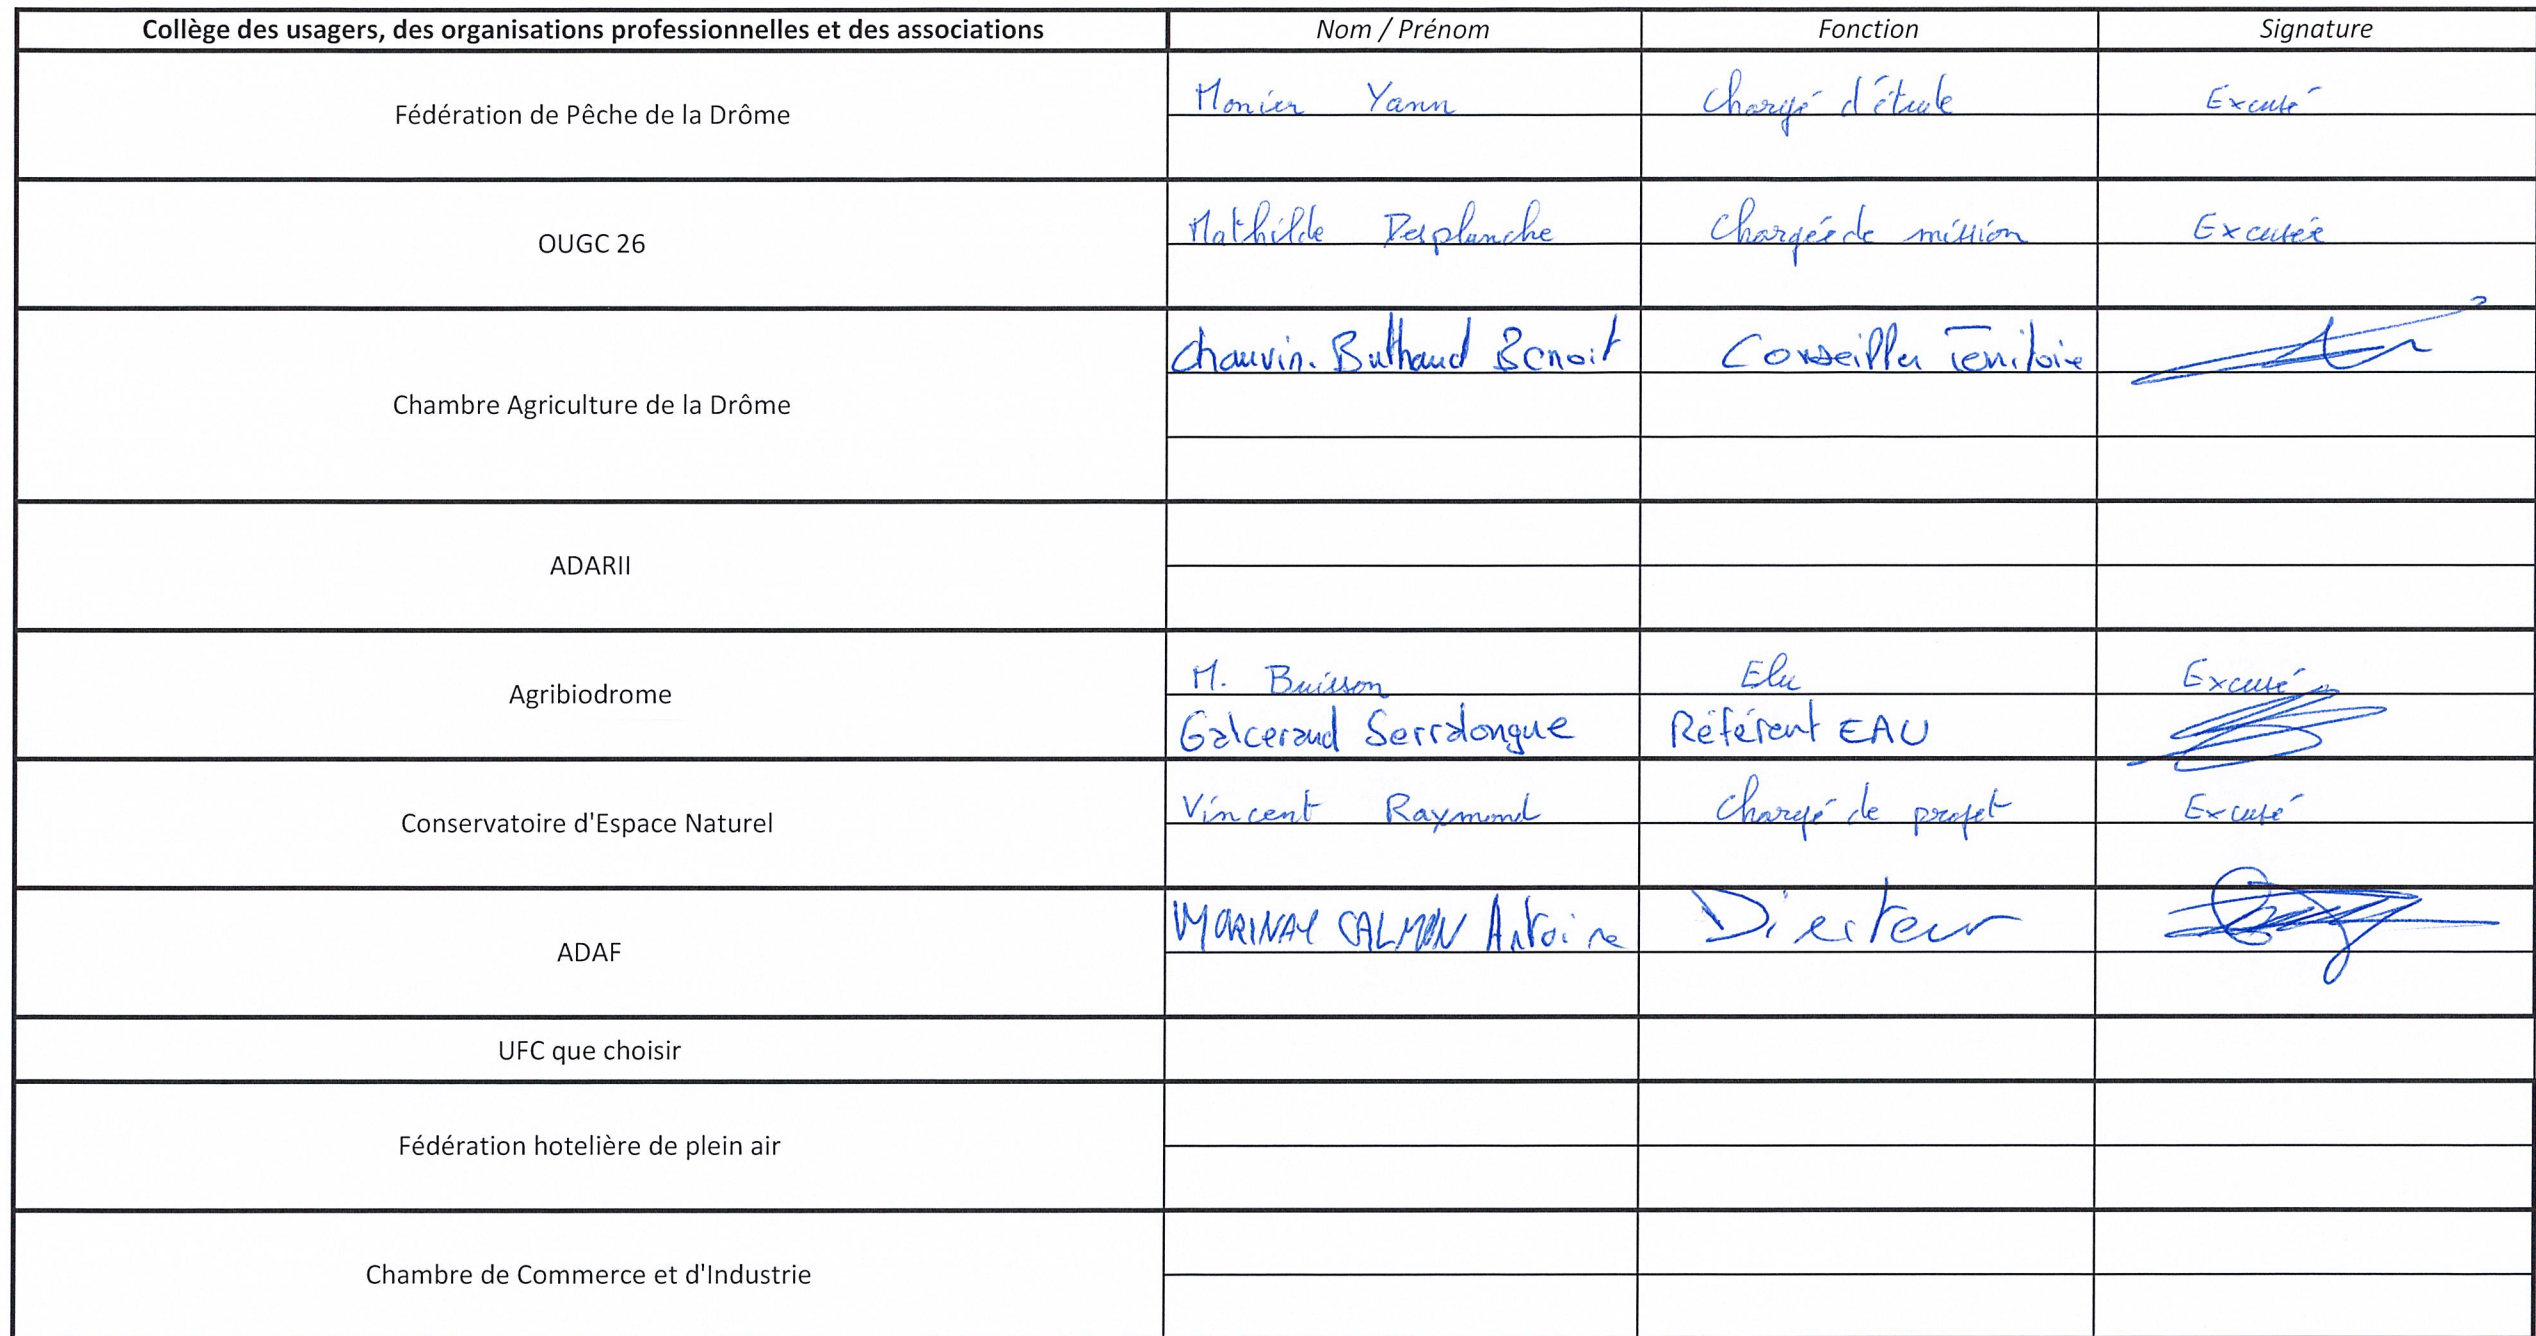 Collège des usagers, des organisations professionnelles et des associations Nom / Prénom Fonction Signature
Fédération de Pêche de la Drôme Monier Yann Chargé d'étude Excusé
OUGC 26 Mathilde Desplanche Chargée de mission Excusée
Chauvin. Buthaud Benoit Conseiller Territoire
Chambre Agriculture de la Drôme
ADARII
M. Buisson Elu Excusé
Agribiodrome
Galcerand Serralongue Référent EAU
Conservatoire d'Espace Naturel Vincent Raymond Chargé de projet Excusé
CALMON Antoine Directeur
ADAF
UFC que choisir
Fédération hotelière de plein air
Chambre de Commerce et d'Industrie